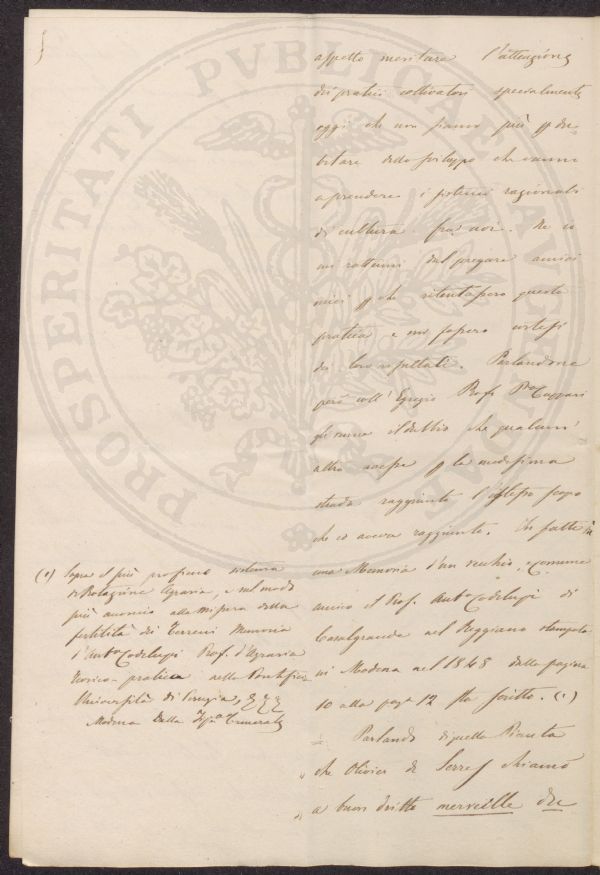 aspetto meritare l'attenzione
dei pratici coltivatori specialmente
oggi che non siamo più p du-
bitare dello sviluppo che vanno
a prendere i sistemi razionali
di cultura fra noi. Ne io
mi rattenni dal pregare amici
miei p che ritentassero questa
pratica e mi fossero cortesi
dei loro resultati. Parlandone
però coll' Egregio Profr
gli nacque il dubbio che qualcun'
altro avesse p la medesima
strada raggiunto l'istesso scopo
che io aveva raggiunto. In fatti in
una Memoria d'un vecchio, e comune
amico il Prof. Anto Codelupi di
Casalgrande nel Reggiano stampata
in Modena nel 1848 dalla pagina
10 alla paga 12 sta scritto. (1)
Parlando di quella Pianta
" che Olivier de Serres chiamò
" a buon dritto merveille du
(1) Sopra il più proficuo sistema
di Rotazione Agraria, e sul modo
più acconcio alla misura della
fertilità dei Terreni Memoria
d'Anto Codelupi Prof. d'Agraria
Teorico-pratica nella Pontificia
Università di Perugia,
Modena Dalla Tipa Camerale
PROSPERITATI PVBLICAE AVGENDAE